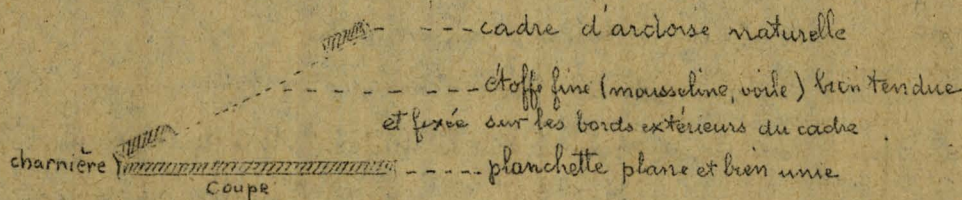 cadre d'ardoise naturelle
étoffe fine (mousseline, voile) bien tendue
et fixée sur les bords extérieurs du cadre
charnière planchette plane et bien unie
Coupe